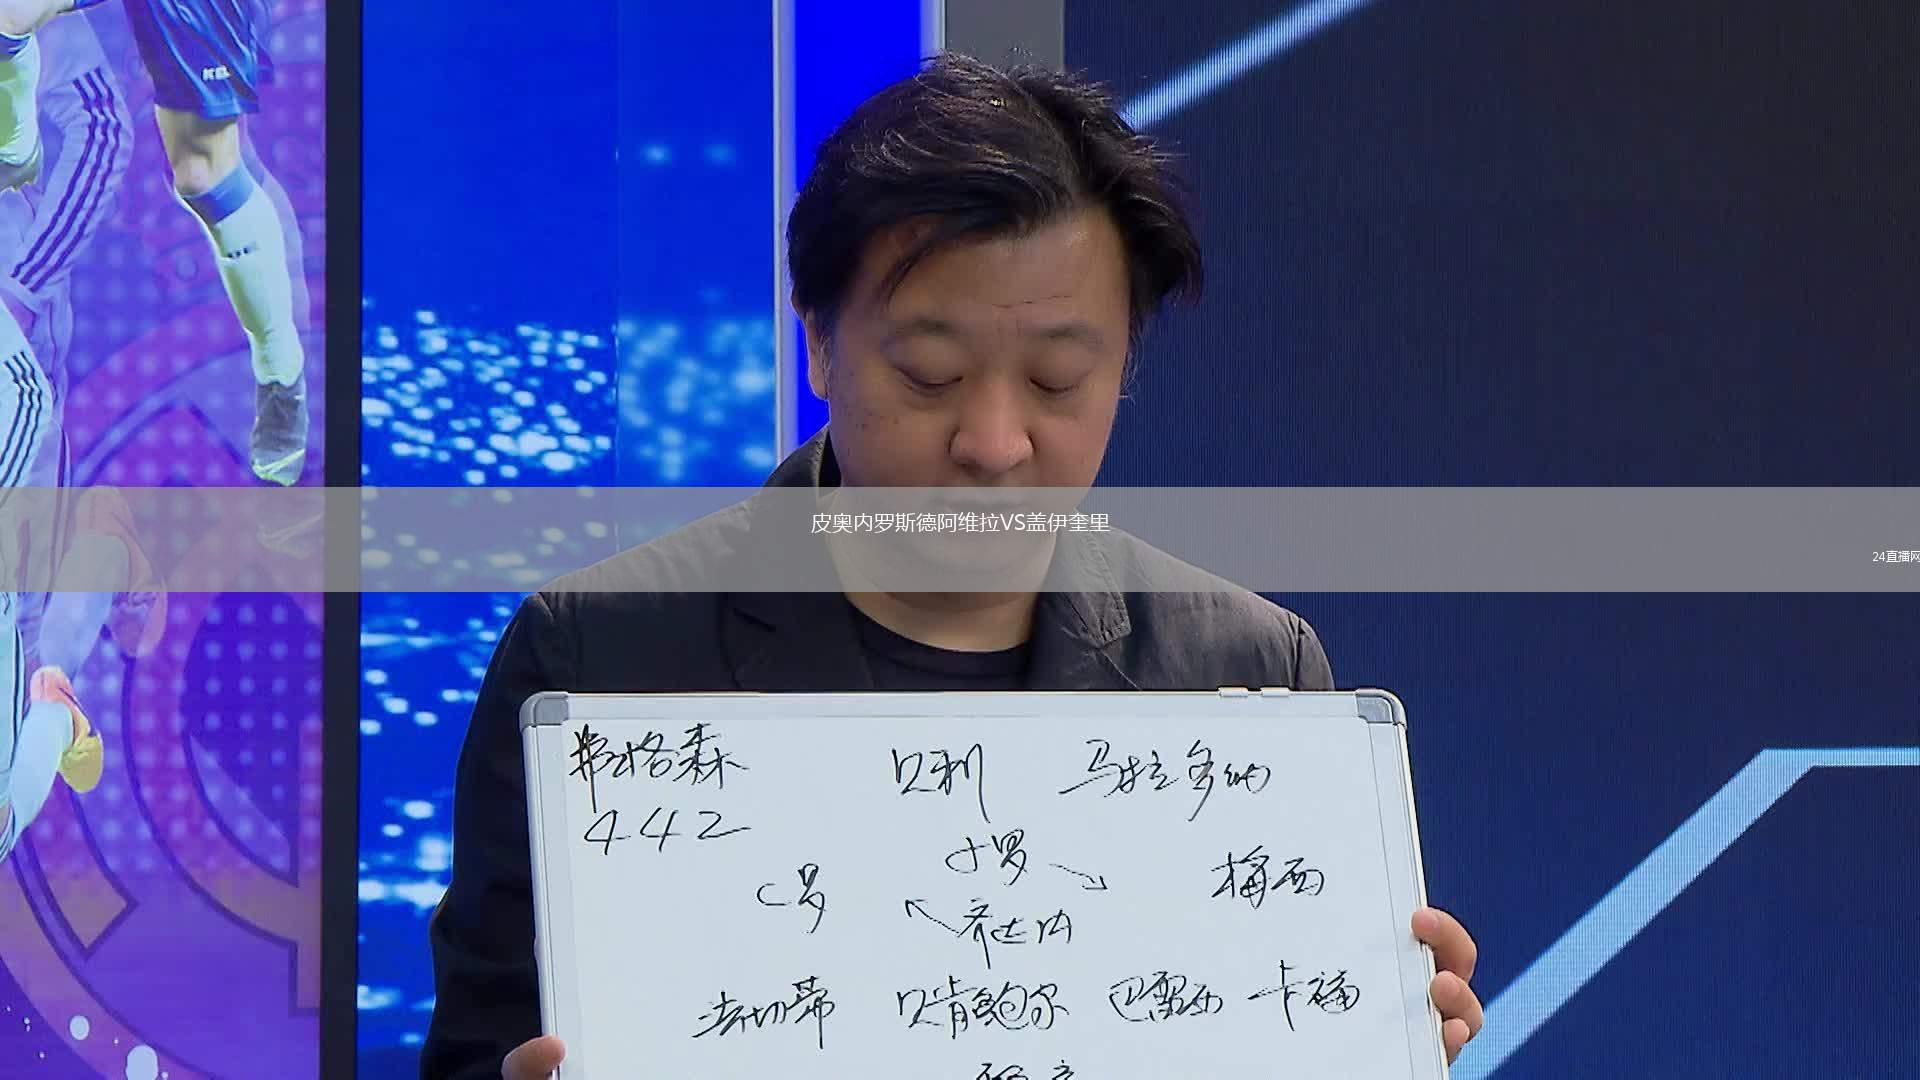 皮奥内罗斯德阿维拉VS盖伊奎里
24直播网
弗格森 贝利 马拉多纳
442
小罗
C罗 梅西
齐达内
法切蒂 贝肯鲍尔 巴雷西 卡福